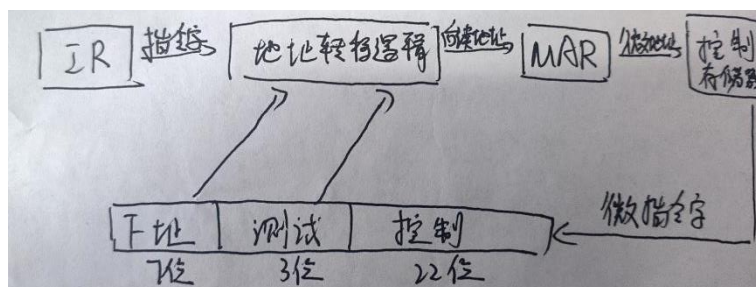 IR 指令 地址转移逻辑 后续地址 MAR 微地址 控制
存储器
微指令字
下址 测试 控制
7位 3位 22位